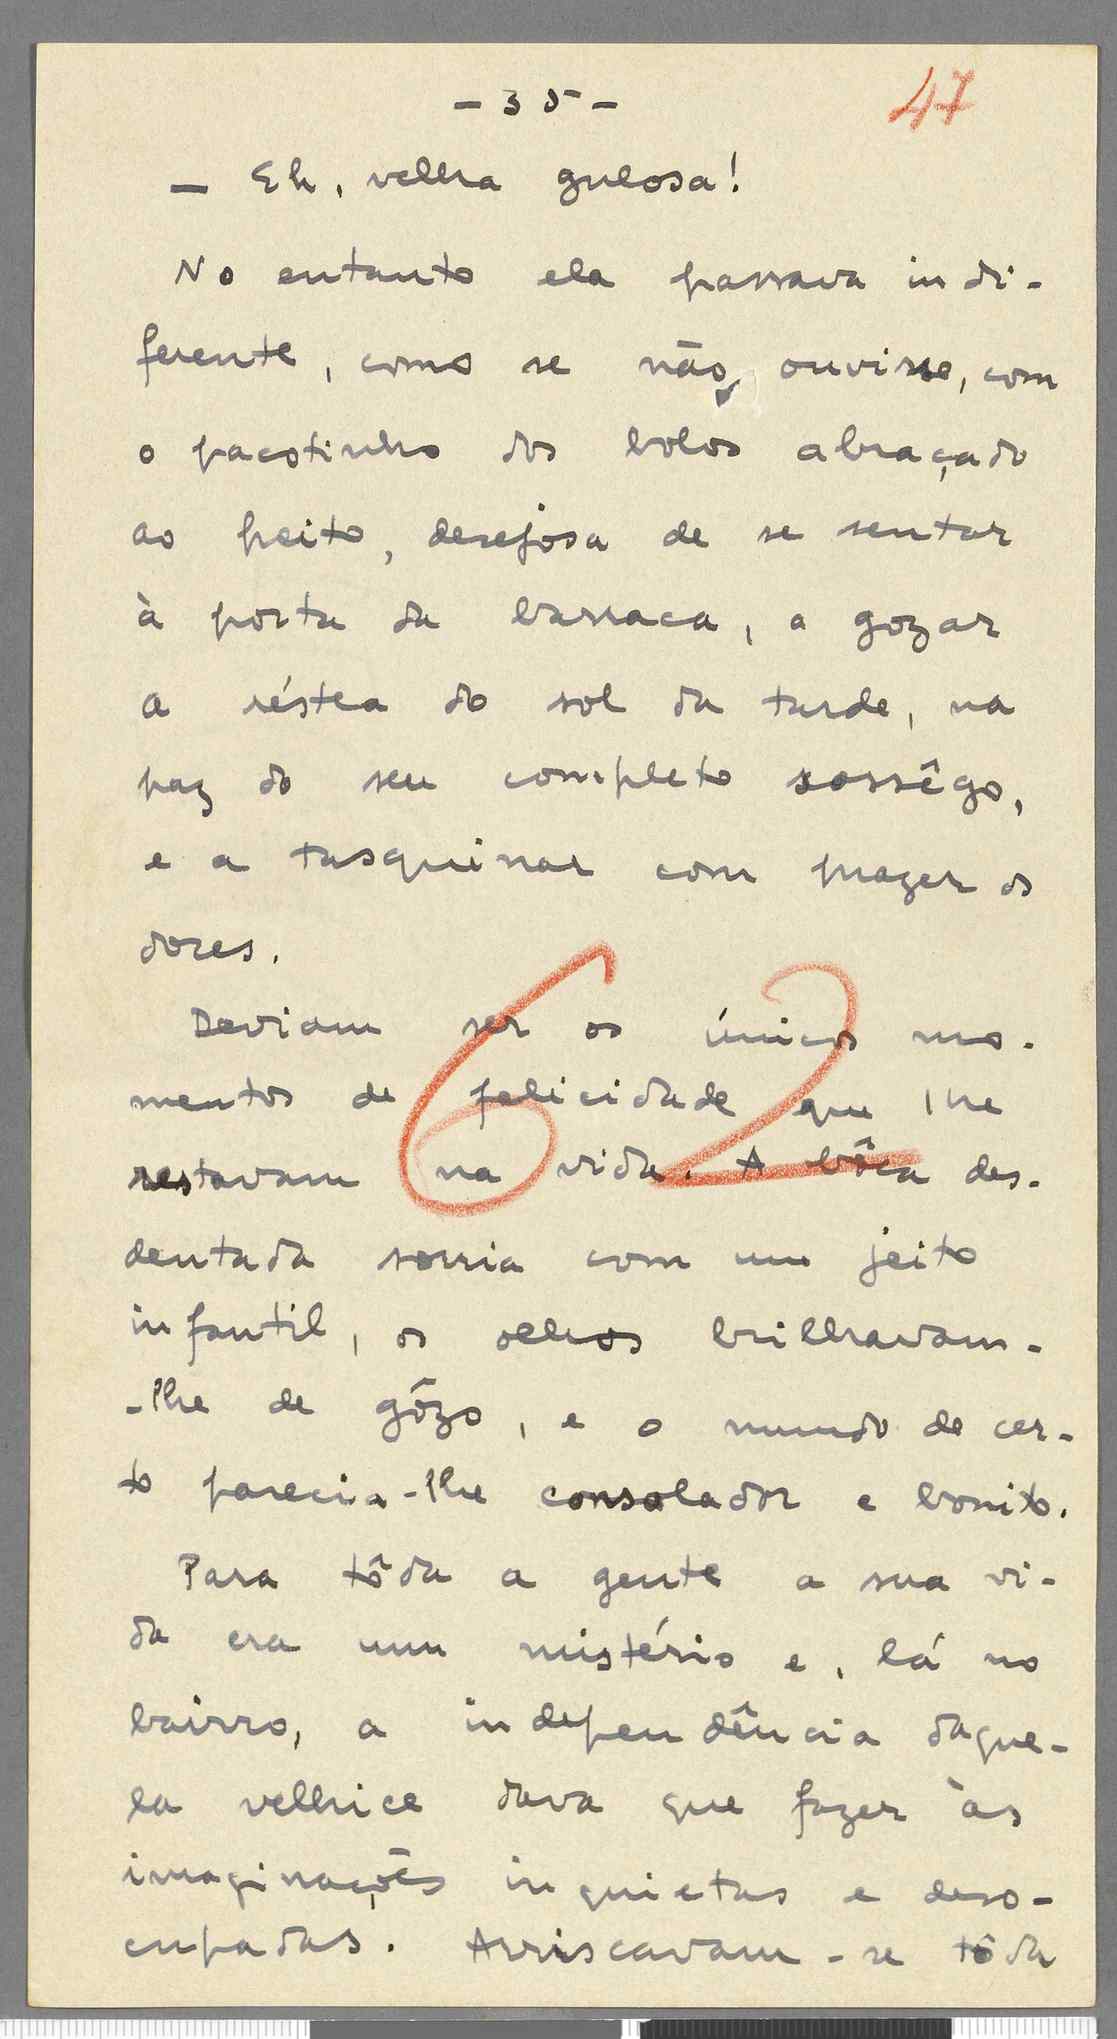 - 35 -
47
— Eh, velha gulosa!
No entanto ela passava indi-
ferente, como se não ouvisse, com
o pacotinho dos bolos abraçado
ao peito, desejosa de se sentar
à porta da barraca, a gozar
a réstea do sol da tarde, na
paz do seu completo sossêgo,
e a tasquinar com prazer os
doces.
Deviam ser os únicos mo-
mentos de felicidade que lhe
restavam na vida. A bôca des-
dentada sorria com um jeito
infantil, os olhos brilhavam-
-lhe de gôzo, e o mundo de cer-
to parecia-lhe consolador e bonito.
Para tôda a gente a sua vi-
da era um mistério e, lá no
bairro, a independência daque-
la velhice dava que fazer às
imaginações inquietas e deso-
cupadas. Arriscavam-se tôda
62